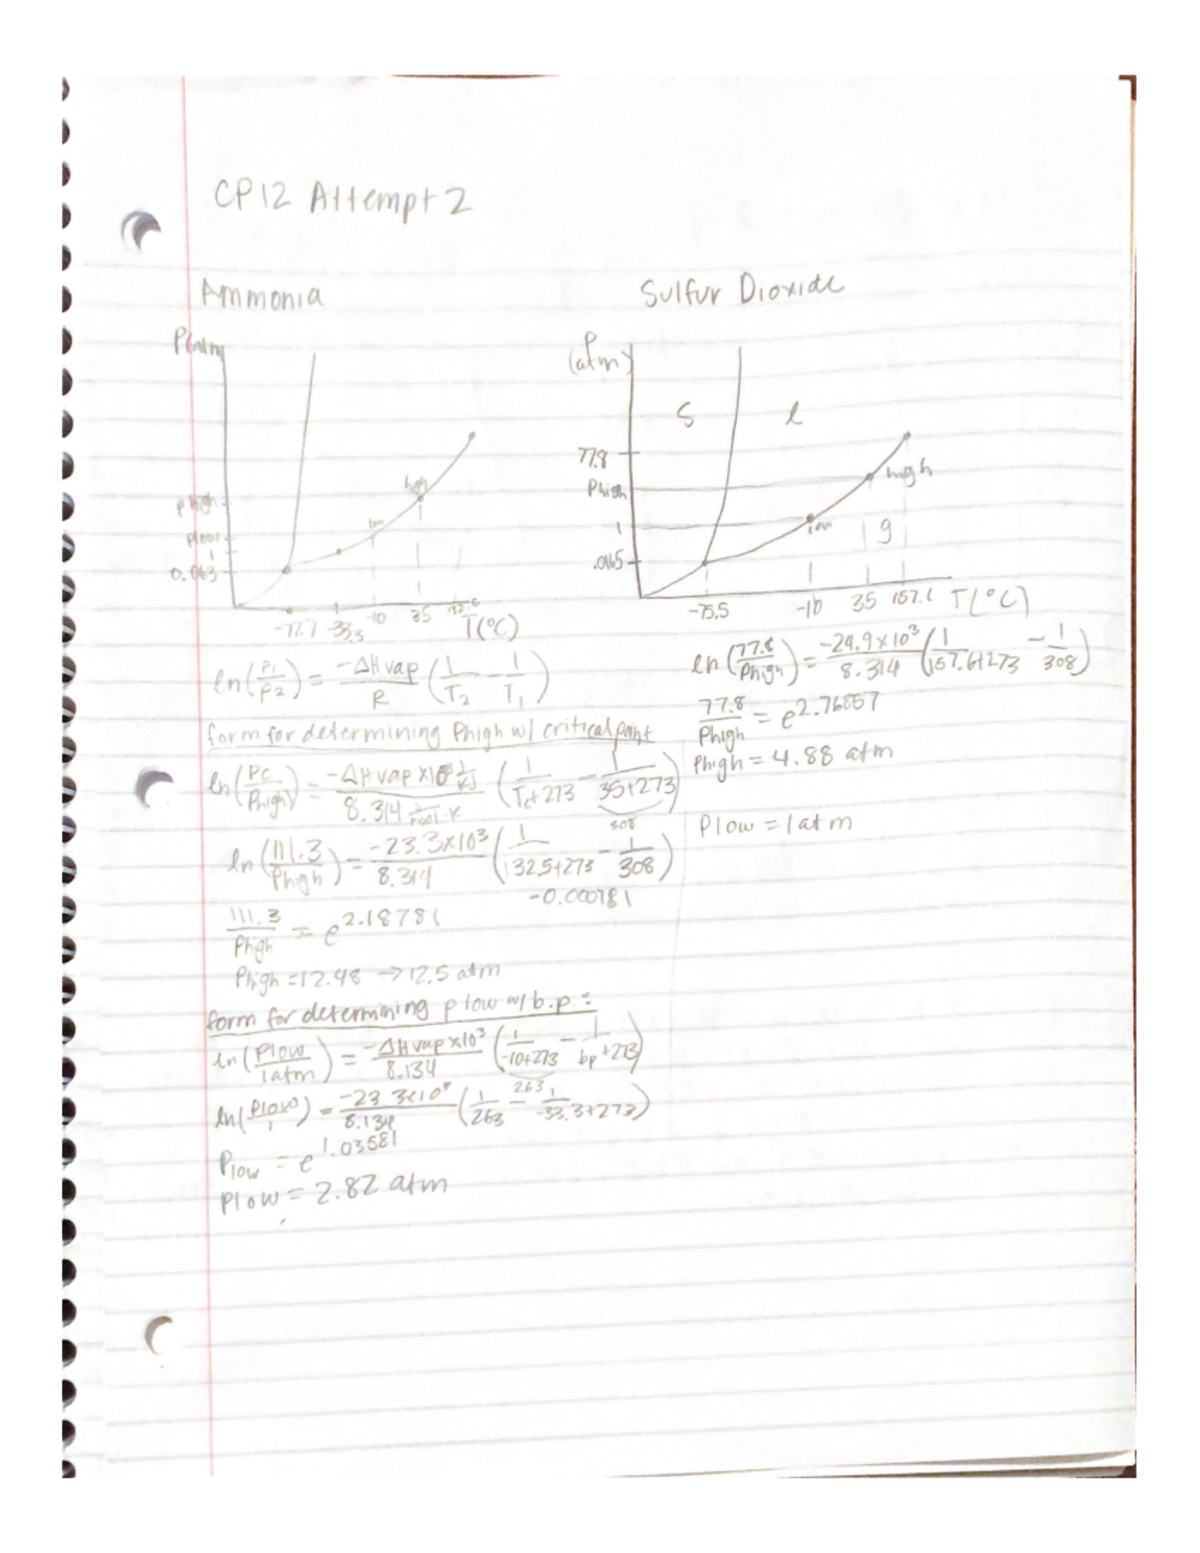 CP12 Attempt 2
Ammonia
P(atm)
Phigh
Plow
1
0.063
high
low
-77.7 -33.3 -10 35 132.5
T(°C)
Sulfur Dioxide
P
(atm)
S l
77.8
Phigh
1
.0165
high
low
g
-75.5 -10 35 157.6 T(°C)
ln(P1/P2) = -ΔHvap/R (1/T2 - 1/T1)
form for determining Phigh w/ critical point
ln(Pc/Phigh) = -ΔHvap x10³ J/kJ / 8.314 J/mol·K (1/Tc+273 - 1/35+273)
308
ln(111.3/Phigh) = -23.3x10³/8.314 (1/132.5+273 - 1/308)
-0.000781
111.3/Phigh = e^2.18781
Phigh = 12.48 → 12.5 atm
form for determining plow w/ b.p:
ln(Plow/1atm) = -ΔHvap x10³/8.134 (1/-10+273 - 1/bp+273)
263
ln(Plow/1) = -23.3x10³/8.134 (1/263 - 1/-33.3+273)
Plow = e^1.03581
Plow = 2.82 atm
ln(77.8/Phigh) = -24.9x10³/8.314 (1/157.6+273 - 1/308)
77.8/Phigh = e^2.76857
Phigh = 4.88 atm
Plow = 1 atm